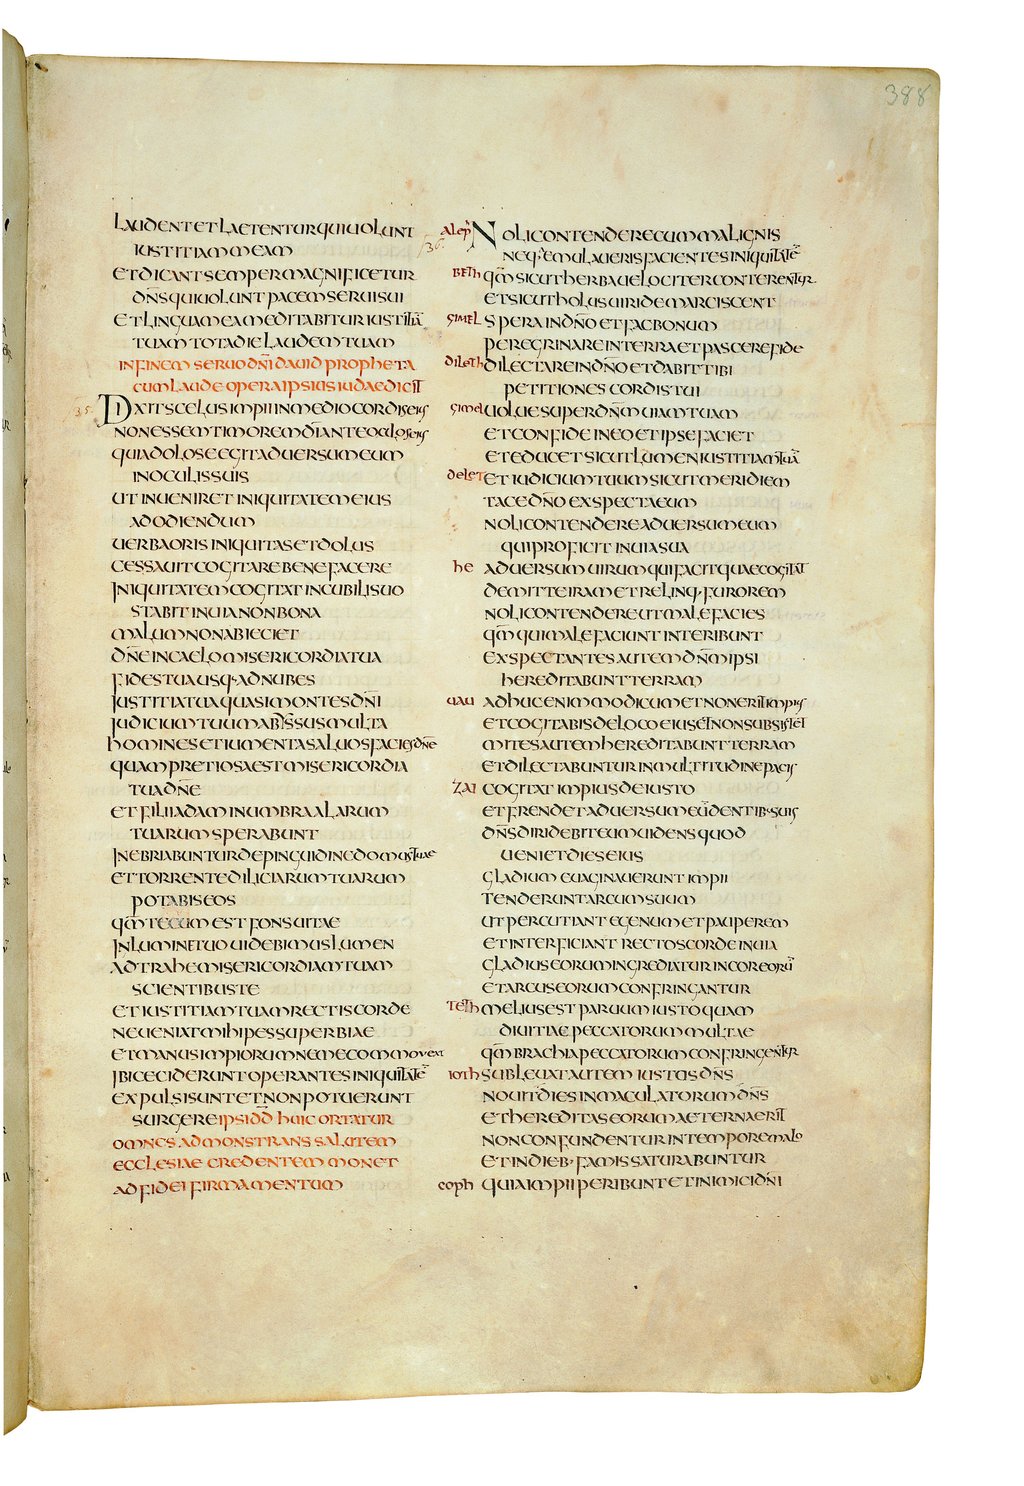 388
LAUDENT ET LAETENTUR QUI UOLUNT
IUSTITIAM MEAM
ET DICANT SEMPER MAGNIFICETUR
DN̅S QUI UOLUNT PACEM SERUI SUI
ET LINGUA MEA MEDITABITUR IUSTITIĀ
TUAM TOTA DIE LAUDEM TUAM
IN FINEM SERUO DN̅I DAUID PROPHETA
CUM LAUDE OPERA IPSIUS IUDAE DICIT
35. DIXIT SCELUS IMPII IN MEDIO CORDIS EIS
NON ESSEM TIMOREM DI̅ ANTE OCULOS EIS
QUIA DOLOSE EGIT ADUERSUM EUM
IN OCULIS SUIS
UT INUENIRET INIQUITATEM EIUS
AD ODIENDUM
UERBA ORIS INIQUITAS ET DOLUS
CESSAUIT COGITARE BENE FACERE
INIQUITATEM COGITAT IN CUBILI SUO
STABIT IN UIA NON BONA
MALUM NON ABIECIET
DN̅E IN CAELO MISERICORDIA TUA
FIDES TUA USQ· AD NUBES
IUSTITIA TUA QUASI MONTES DN̅I
IUDICIUM TUUM ABISSUS MULTA
HOMINES ET IUMENTA SALUOS FACIES DN̅E
QUAM PRETIOSA EST MISERICORDIA
TUA DN̅E
ET FILII ADAM IN UMBRA ALARUM
TUARUM SPERABUNT
INEBRIABUNTUR DE PINGUIDINE DOMUS TUAE
ET TORRENTE DILICIARUM TUARUM
POTABIS EOS
QM̅ TECUM EST FONS UITAE
IN LUMINE TUO UIDEBIMUS LUMEN
ADTRAHE MISERICORDIAM TUAM
SCIENTIBUS TE
ET IUSTITIAM TUAM RECTIS CORDE
NE UENIAT MIHI PES SUPERBIAE
ET MANUS IMPIORUM NE ME COMMOVEAT
IBI CECIDERUNT OPERANTES INIQUITATĒ
EXPULSI SUNT ET NON POTUERUNT
SURGERE IPSI DD̅ HUIC ORTATUR
OMNES ADMONSTRANS SALUTEM
ECCLESIAE CREDENTEM MONET
AD FIDEI FIRMAMENTUM
ALEPH NOLI CONTENDERE CUM MALIGNIS
36. NEQ· EMULAUERIS FACIENTES INIQUITATĒ
BETH QM̅ SICUT HERBA UELOCITER CONTERENTUR
ET SICUT HOLUS UIRIDE MARCISCENT
GIMEL SPERA IN DN̅O ET FAC BONUM
PEREGRINARE IN TERRA ET PASCERE FIDE
DILETH DILECTARE IN DN̅O ET DABIT TIBI
PETITIONES CORDIS TUI
GIMEL UOLUE SUPER DN̅M UIAM TUAM
ET CONFIDE IN EO ET IPSE FACIET
ET EDUCET SICUT LUMEN IUSTITIAM TUĀ
DELET ET IUDICIUM TUUM SICUT MERIDIEM
TACE DN̅O EXSPECTA EUM
NOLI CONTENDERE ADUERSUM EUM
QUI PROFICIT IN UIA SUA
HE ADUERSUM UIRUM QUI FACIT QUAE COGITAT
DEMITTE IRAM ET RELINQ· FUROREM
NOLI CONTENDERE UT MALE FACIES
QM̅ QUI MALE FACIUNT INTERIBUNT
EXSPECTANTES AUTEM DN̅M IPSI
HEREDITABUNT TERRAM
UAU ADHUC ENIM MODICUM ET NON ERIT IMPIIS
ET COGITABIS DE LOCO EIUS ET NON SUBSISTET
MITES AUTEM HEREDITABUNT TERRAM
ET DILECTABUNTUR IN MULTITUDINE PACIS
ZAI COGITAT IMPIUS DE IUSTO
ET FRENDET ADUERSUM EŪ DENTIB· SUIS
DN̅S DIRIDEBIT EUM UIDENS QUOD
UENIET DIES EIUS
GLADIUM EUAGINAUERUNT IMPII
TENDERUNT ARCUM SUUM
UT PERCUTIANT EGENUM ET PAUPEREM
ET INTERFICIANT RECTOS CORDE IN UIA
GLADIUS EORUM INGREDIATUR IN CORE ORŪ
ET ARCUS EORUM CONFRINGANTUR
TETH MELIUS EST PARUUM IUSTO QUAM
DIUITIAE PECCATORUM MULTAE
QM̅ BRACHIA PECCATORUM CONFRINGENTUR
IOTH SUBLEUAT AUTEM IUSTOS DN̅S
NOUIT DIES INMACULATORUM DN̅S
ET HEREDITAS EORUM AETERNA ERIT
NON CONFUNDENTUR IN TEMPORE MALO
ET IN DIEB· FAMIS SATURABUNTUR
COPH QUIA IMPII PERIBUNT ET INIMICI DN̅I